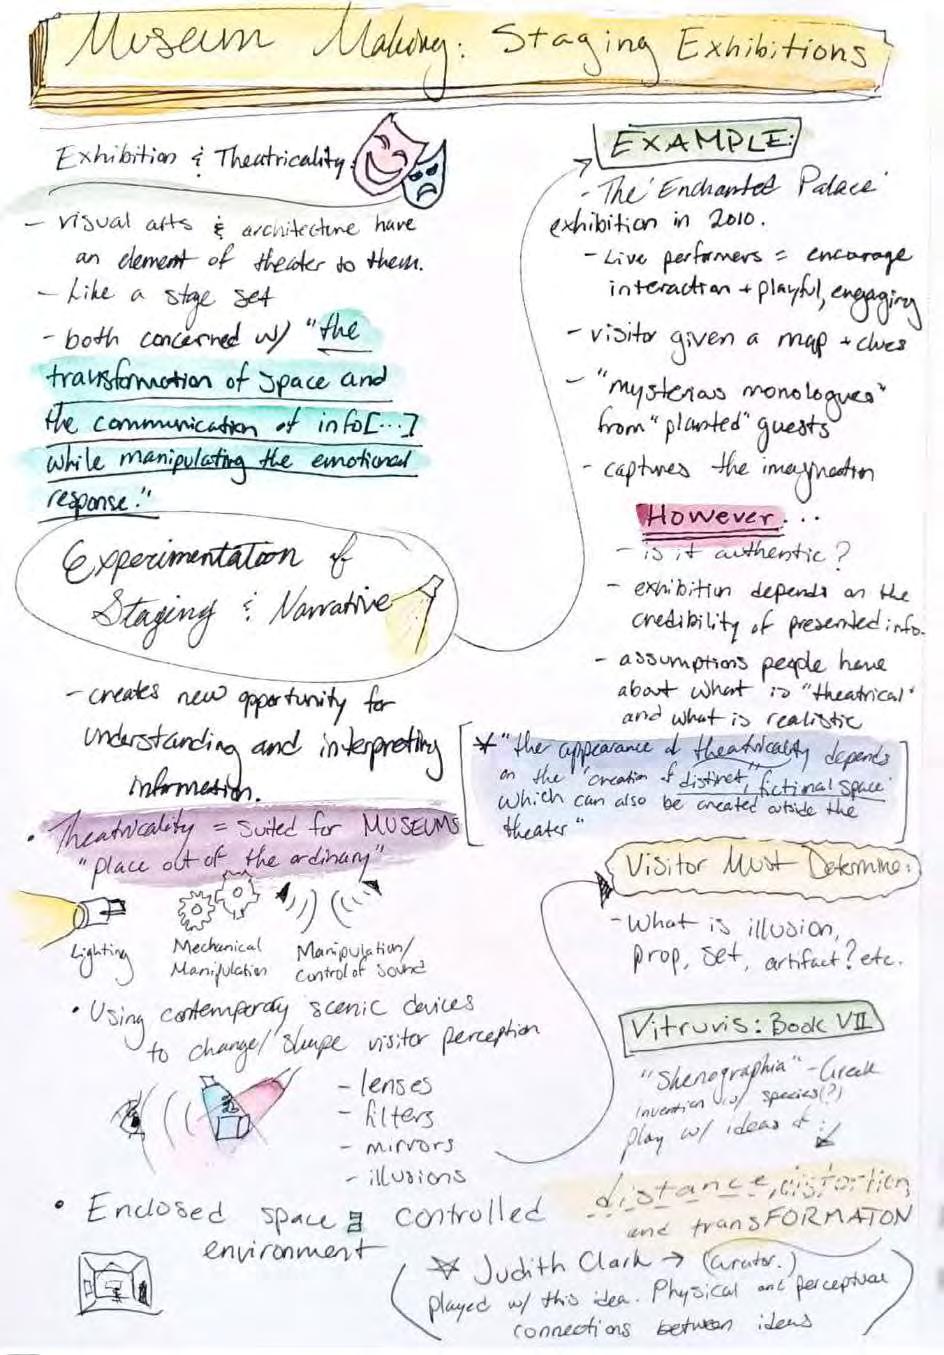 Museum Making: Staging Exhibitions
Exhibition & Theatricality:
- visual arts & architecture have
an element of theater to them.
- Like a stage set
- both concerned w/ "the
transformation of space and
the communication of info[...]
while manipulating the emotional
response."
Experimentation of
Staging & Narrative
- creates new opportunity for
understanding and interpreting
information.
• Theatricality = suited for MUSEUMS
"place out of the ordinary"
Lighting
Mechanical
Manipulation
Manipulation/
control of sound
• Using contemporary scenic devices
to change/shape visitor perception
- lenses
- filters
- mirrors
- illusions
• Enclosed space & controlled
environment
EXAMPLE:
- The 'Enchanted Palace'
exhibition in 2010.
- Live performers = encourage
interaction + playful, engaging
- visitor given a map + clues
- "mysterious monologues"
from "planted" guests
- captures the imagination
However...
- is it authentic?
- exhibition depends on the
credibility of presented info.
- assumptions people have
about what is "theatrical"
and what is realistic
* "the appearance of theatricality depends
on the 'creation of distinct, fictional space'
which can also be created outside the
theater"
Visitor Must Determine:
- What is illusion,
prop, set, artifact? etc.
Vitruvis: Book VII
"Skenographia" - Greek
invention w/ species(?)
play w/ ideas of:
distance, distortion
and transFORMATON
☆ Judith Clark → (curator.)
played w/ this idea. Physical and perceptual
connections between ideas